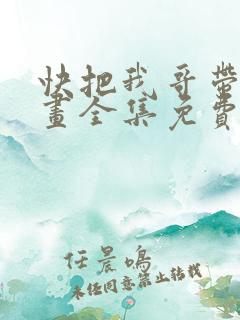 快把我哥帶
畫全集免費
任晨鳴
未经同意禁止转载